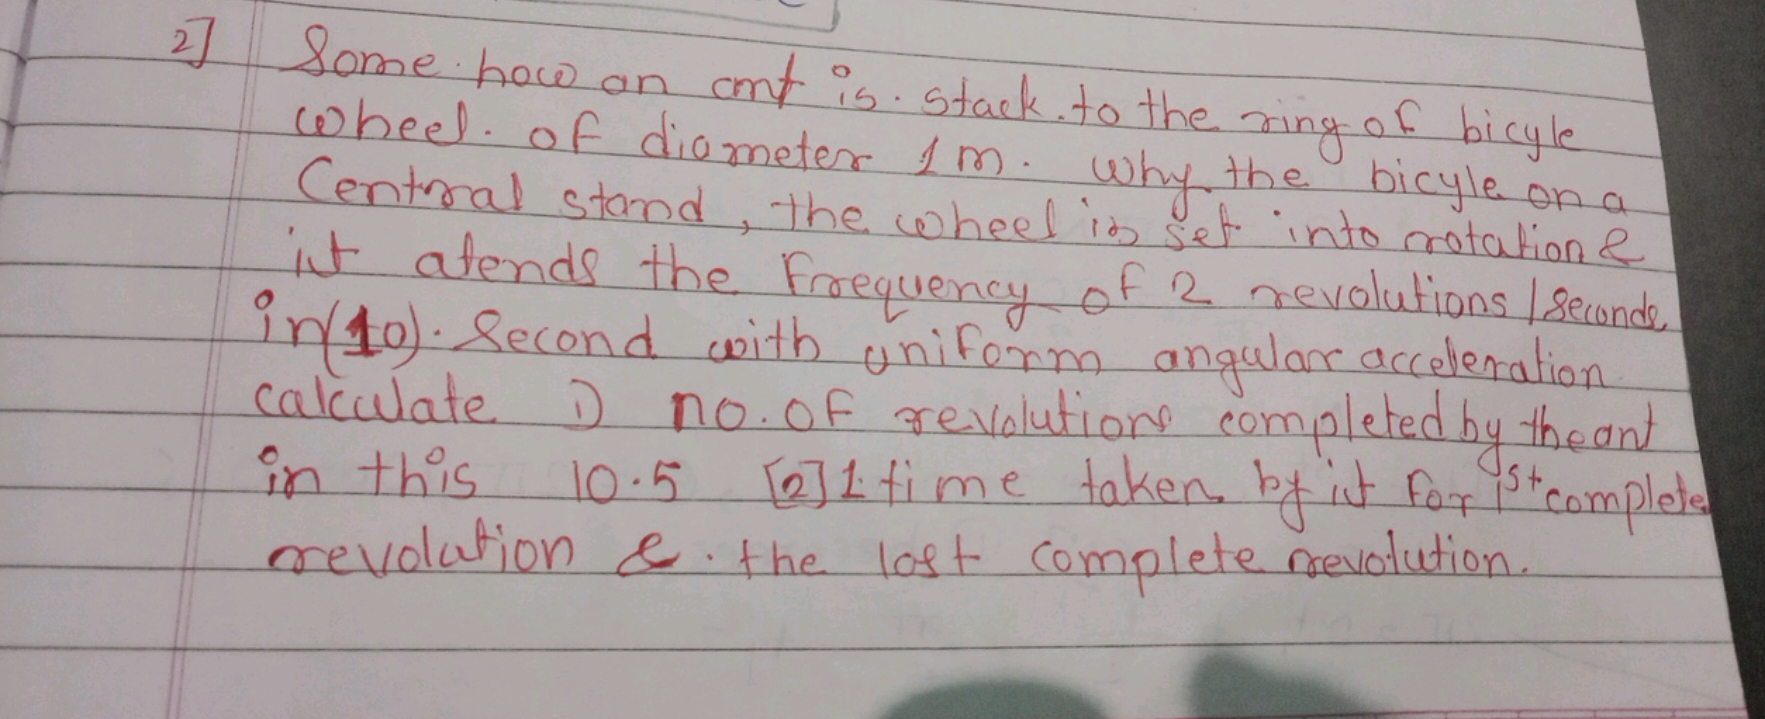 2] Some how an cmt is stack to the ring of bicyle
wheel. of diameter 1m. why the bicyle on a
Central stand, the wheel is set into rotation &
it atends the Frequency of 2 revolutions / Seconds
in (10). Second with uniform angular acceleration
calculate 1) no. of revolutions completed by the ant
in this 10.5 [2] 1 time taken by it For 1st complete
revolution & the last complete revolution.